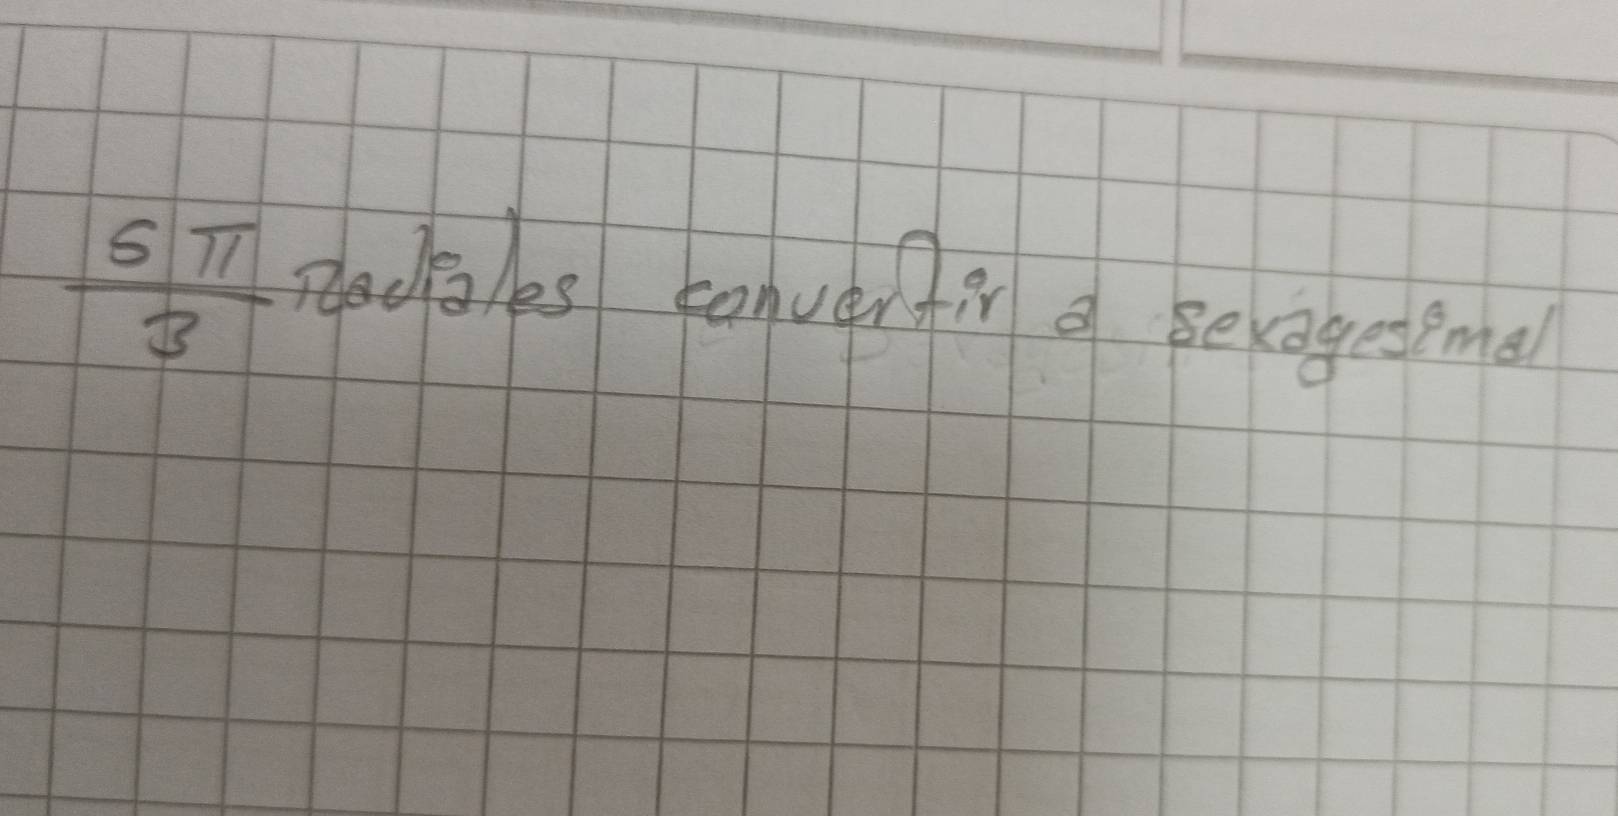 5π/3 Radiales convertir a sexagesimal